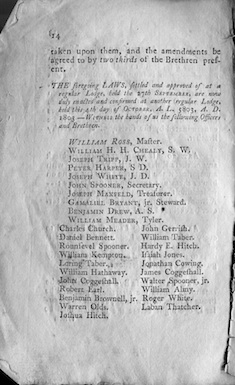 14
taken upon them, and the amendments be
agreed to by two thirds of the Brethren pres-
ent.
THE foregoing LAWS, stated and approved of at a
regular Lodge, held the 25th SEPTEMBER, are now
duly enacted and confirmed at another regular Lodge,
held this 4th day of OCTOBER, A. L. 5803. A. D.
1803 —WITNESS the hands of us the following Officers
and Brethren.
WILLIAM ROSS, Master.
WILLIAM H. H. CHEALY, S. W.
JOSEPH TRIPP, J. W.
PETER HARPER, S D.
JOSEPH WHITE, J. D.
JOHN SPOONER, Secretary.
JOSEPH MAXFELD, Treasurer.
GAMALIEL BRYANT, jr. Steward.
BENJAMIN DREW, A. S.
WILLIAM MEADER, Tyler.
Charles Church. John Gerrish.
Daniel Bennett. William Taber.
Rounsevel Spooner. Hardy E. Hitch.
William Kempton. Isaiah Jones.
Loring Taber. Jonathan Cowing.
William Hathaway. James Coggeshall.
John Coggeshall. Walter Spooner, jr.
Robert Earl. William Almy.
Benjamin Brownell, jr. Roger White.
Warren Olds. Laban Thatcher.
Joshua Hitch.